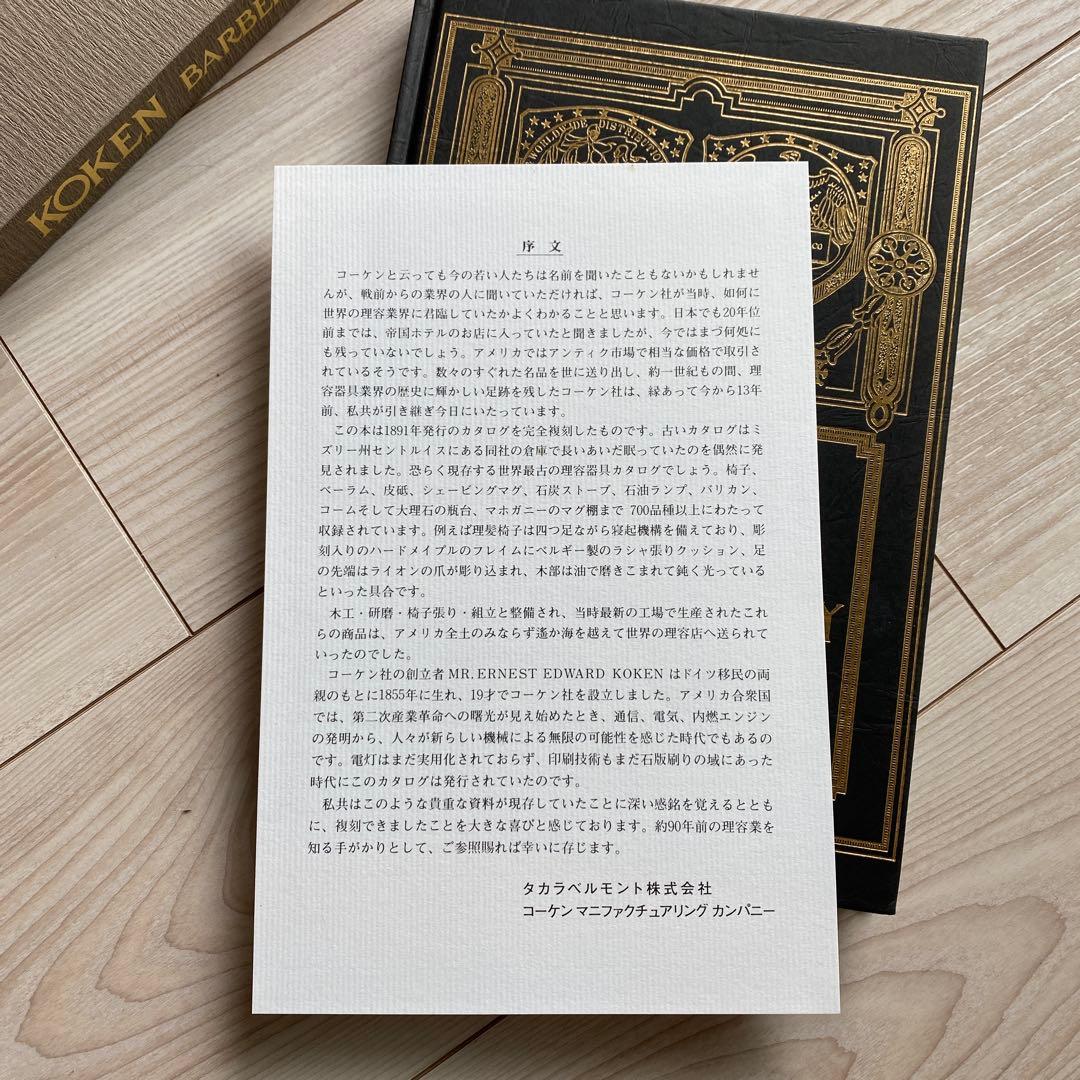 KOKEN BARBE
WORLDWIDE DISTRIBUTION
序文
コーケンと云っても今の若い人たちは名前を聞いたこともないかもしれませ
んが、戦前からの業界の人に聞いていただければ、コーケン社が当時、如何に
世界の理容業界に君臨していたかよくわかることと思います。日本でも20年位
前までは、帝国ホテルのお店に入っていたと聞きましたが、今ではまづ何処に
も残っていないでしょう。アメリカではアンティク市場で相当な価格で取引さ
れているそうです。数々のすぐれた名品を世に送り出し、約一世紀もの間、理
容器具業界の歴史に輝かしい足跡を残したコーケン社は、縁あって今から13年
前、私共が引き継ぎ今日にいたっています。
この本は1891年発行のカタログを完全複刻したものです。古いカタログはミ
ズリー州セントルイスにある同社の倉庫で長いあいだ眠っていたのを偶然に発
見されました。恐らく現存する世界最古の理容器具カタログでしょう。椅子、
ベーラム、皮砥、シェービングマグ、石炭ストーブ、石油ランプ、バリカン、
コームそして大理石の瓶台、マホガニーのマグ棚まで 700品種以上にわたって
収録されています。例えば理髪椅子は四つ足ながら寝起機構を備えており、彫
刻入りのハードメイプルのフレイムにベルギー製のラシャ張りクッション、足
の先端はライオンの爪が彫り込まれ、木部は油で磨きこまれて鈍く光っている
といった具合です。
木工・研磨・椅子張り・組立と整備され、当時最新の工場で生産されたこれ
らの商品は、アメリカ全土のみならず遙か海を越えて世界の理容店へ送られて
いったのでした。
コーケン社の創立者 MR. ERNEST EDWARD KOKEN はドイツ移民の両
親のもとに1855年に生れ、19才でコーケン社を設立しました。アメリカ合衆国
では、第二次産業革命への曙光が見え始めたとき、通信、電気、内燃エンジン
の発明から、人々が新らしい機械による無限の可能性を感じた時代でもあるの
です。電灯はまだ実用化されておらず、印刷技術もまだ石版刷りの域にあった
時代にこのカタログは発行されていたのです。
私共はこのような貴重な資料が現存していたことに深い感銘を覚えるととも
に、複刻できましたことを大きな喜びと感じております。約90年前の理容業を
知る手がかりとして、ご参照賜れば幸いに存じます。
タカラベルモント株式会社
コーケン マニファクチュアリング カンパニー
Y